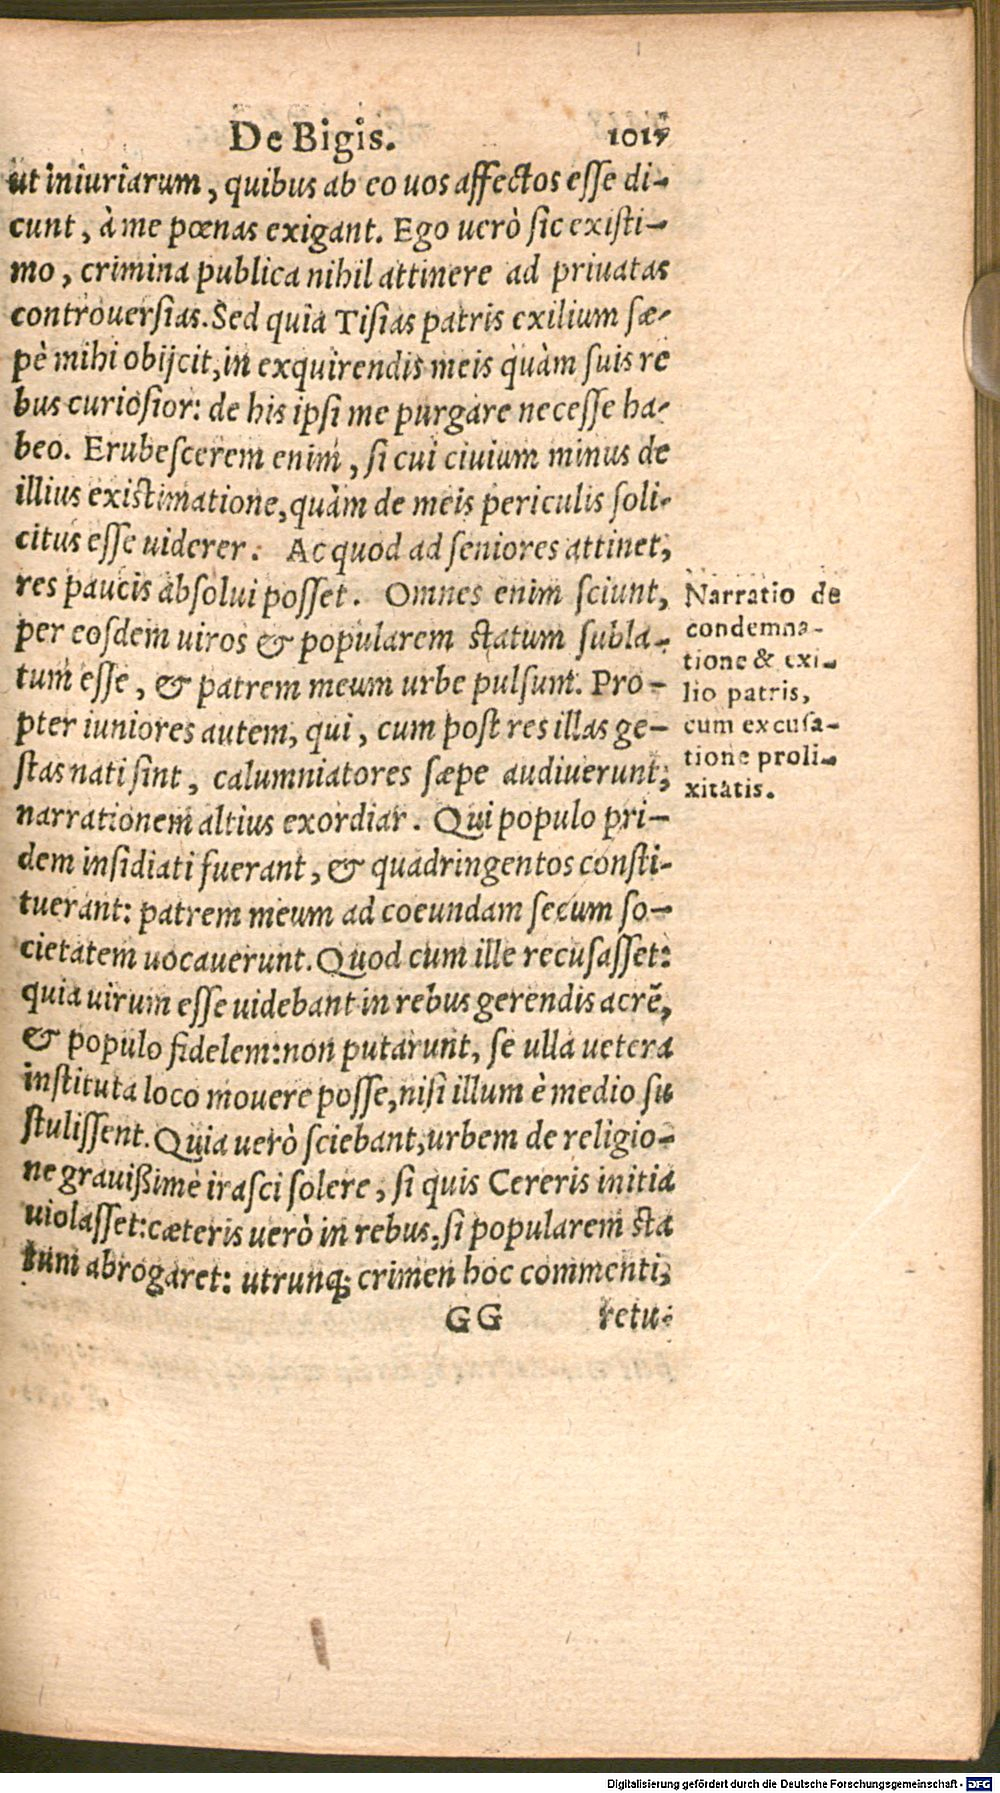 De Bigis. 1017
ut iniuriarum, quibus ab eo uos affectos esse di-
cunt, à me pœnas exigant. Ego uerò sic existi-
mo, crimina publica nihil attinere ad priuatas
controuersias. Sed quia Tisias patris exilium sæ-
pè mihi obijcit, in exquirendis meis quàm suis re
bus curiosior: de his ipsi me purgare necesse ha-
beo. Erubescerem enim, si cui ciuium minus de
illius existimatione, quàm de meis periculis soli-
citus esse uiderer. Ac quod ad seniores attinet,
res paucis absolui posset. Omnes enim sciunt,
per eosdem uiros & popularem statum subla-
tum esse, & patrem meum urbe pulsum. Pro-
pter iuniores autem, qui, cum post res illas ge-
stas nati sint, calumniatores sæpe audiuerunt,
narrationem altius exordiar. Qui populo pri-
dem insidiati fuerant, & quadringentos consti-
tuerant: patrem meum ad coeundam secum so-
cietatem uocauerunt. Quod cum ille recusasset:
quia uirum esse uidebant in rebus gerendis acrē,
& populo fidelem: non putarunt, se ulla uetera
instituta loco mouere posse, nisi illum è medio su
stulissent. Quia uerò sciebant, urbem de religio-
ne grauißimè irasci solere, si quis Cereris initia
uiolasset: cæteris uerò in rebus, si popularem sta
tum abrogaret: utrunq; crimen hoc commenti,
GG retu-
Narratio de
condemna-
tione & exi-
lio patris,
cum excusa-
tione proli-
xitatis.
Digitalisierung gefördert durch die Deutsche Forschungsgemeinschaft - DFG